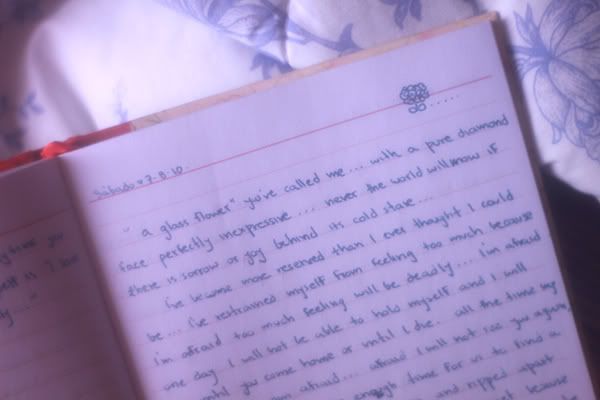 ytime you
I lose
dy..."
Sábado ♥ 7.8.10.
" a glass flower" you've called me.... with a pure diamond
face perfectly inexpressive.... never the world will know if
there is sorrow or joy behind its cold stare....
i've become more reserved than I ever thought I could
be... i've restrained myself from feeling too much because
i'm afraid too much feeling will be deadly... i'm afraid
one day I will not be able to hold myself and I will
until you come home or until I die. all the time my
i'm afraid... afraid I will not see you again,
enough time for us to find a
and ripped apart
because